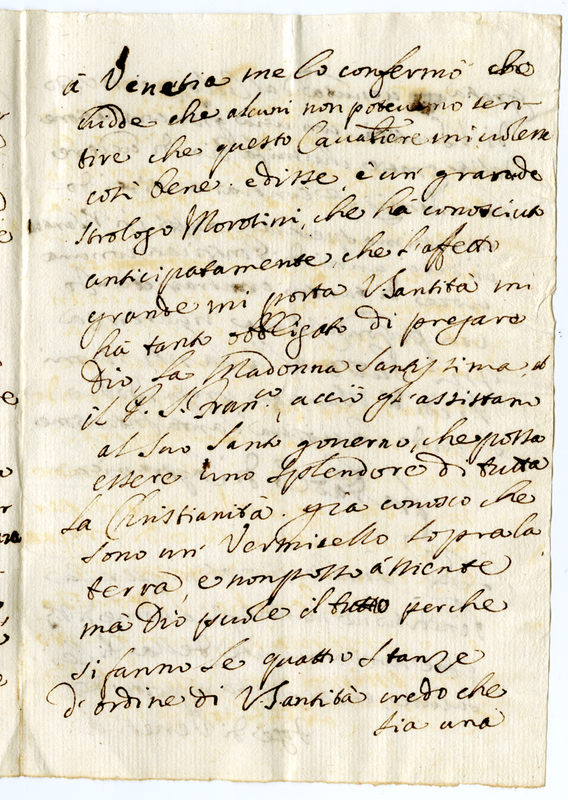 à Venetia me lo confermò che
Vidde che alcuni non potevano sen-
tire che questo Cavaliere mi volesse
così bene. e disse, è un' grande
strologo Morosini, che hà conosciuto
anticipatamente, che l'affetto
grande mi porta V. Santità mi
hà tanto obbligato di pregare
Dio, la Madonna Santissima, et
il P. S. Fran.co, acciò gl'assistano
al suo santo governo, che possa
essere uno splendore di tutta
la Christianità. già conosco che
sono un' Vermicello sopra la
terra, e non posso à niente
mà Dio puole il tutto perche
si fanno le quattro stanze
d'ordine di V. Santità credo che
sia una